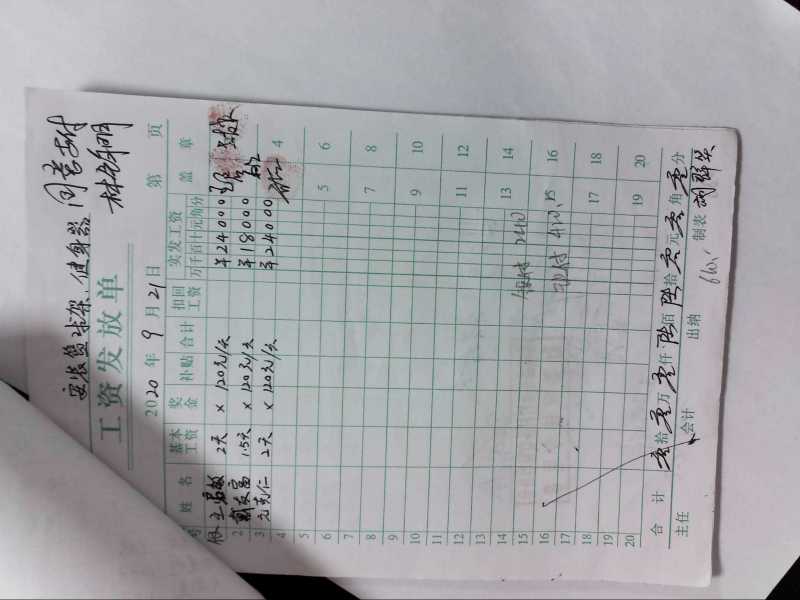 安装篮球架、健身器 同意支付
工资发放单
2020年9月21日 第 页
号 姓名 基本工资 奖金 补贴 合计 扣回工资 实发工资 盖章
万千百十元角分
2天 × 120元/天 ¥24000
2 戴友富 1.5天 × 120元/天 ¥18000
3 2天 × 120元/天 ¥24000 4
4
5 5 6
6
7 7 8
8
9 9 10
10
11 11 12
12
13 13 14
14
15 15 16
16
17 17 18
18
19 19 20
20
合计 零拾零万零仟陆百陆拾零元零角零分
主任 会计 出纳 制表 胡群英